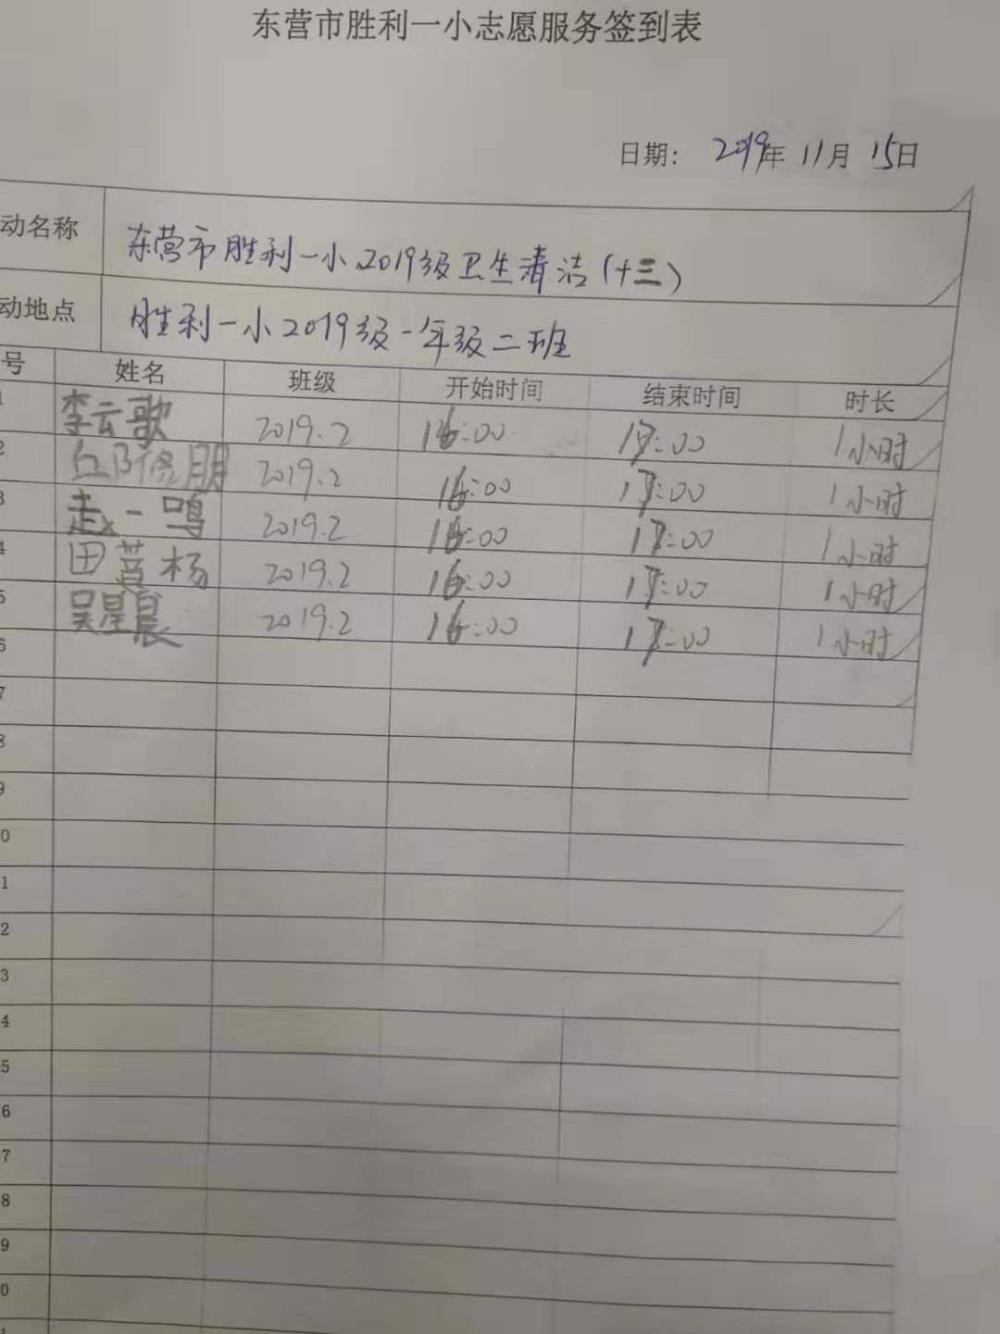 东营市胜利一小志愿服务签到表
日期： 2019年 11月 15日
动名称 东营市胜利一小2019级卫生清洁（十三）
动地点 胜利一小2019级一年级二班
号 姓名 班级 开始时间 结束时间 时长
1 李云歌 2019.2 16:00 17:00 1小时
2 2019.2 16:00 17:00 1小时
3 赵一鸣 2019.2 16:00 17:00 1小时
4 田莒杨 2019.2 16:00 17:00 1小时
5 吴星晨 2019.2 16:00 17:00 1小时
6
7
8
9
0
1
2
3
4
5
6
7
8
9
0